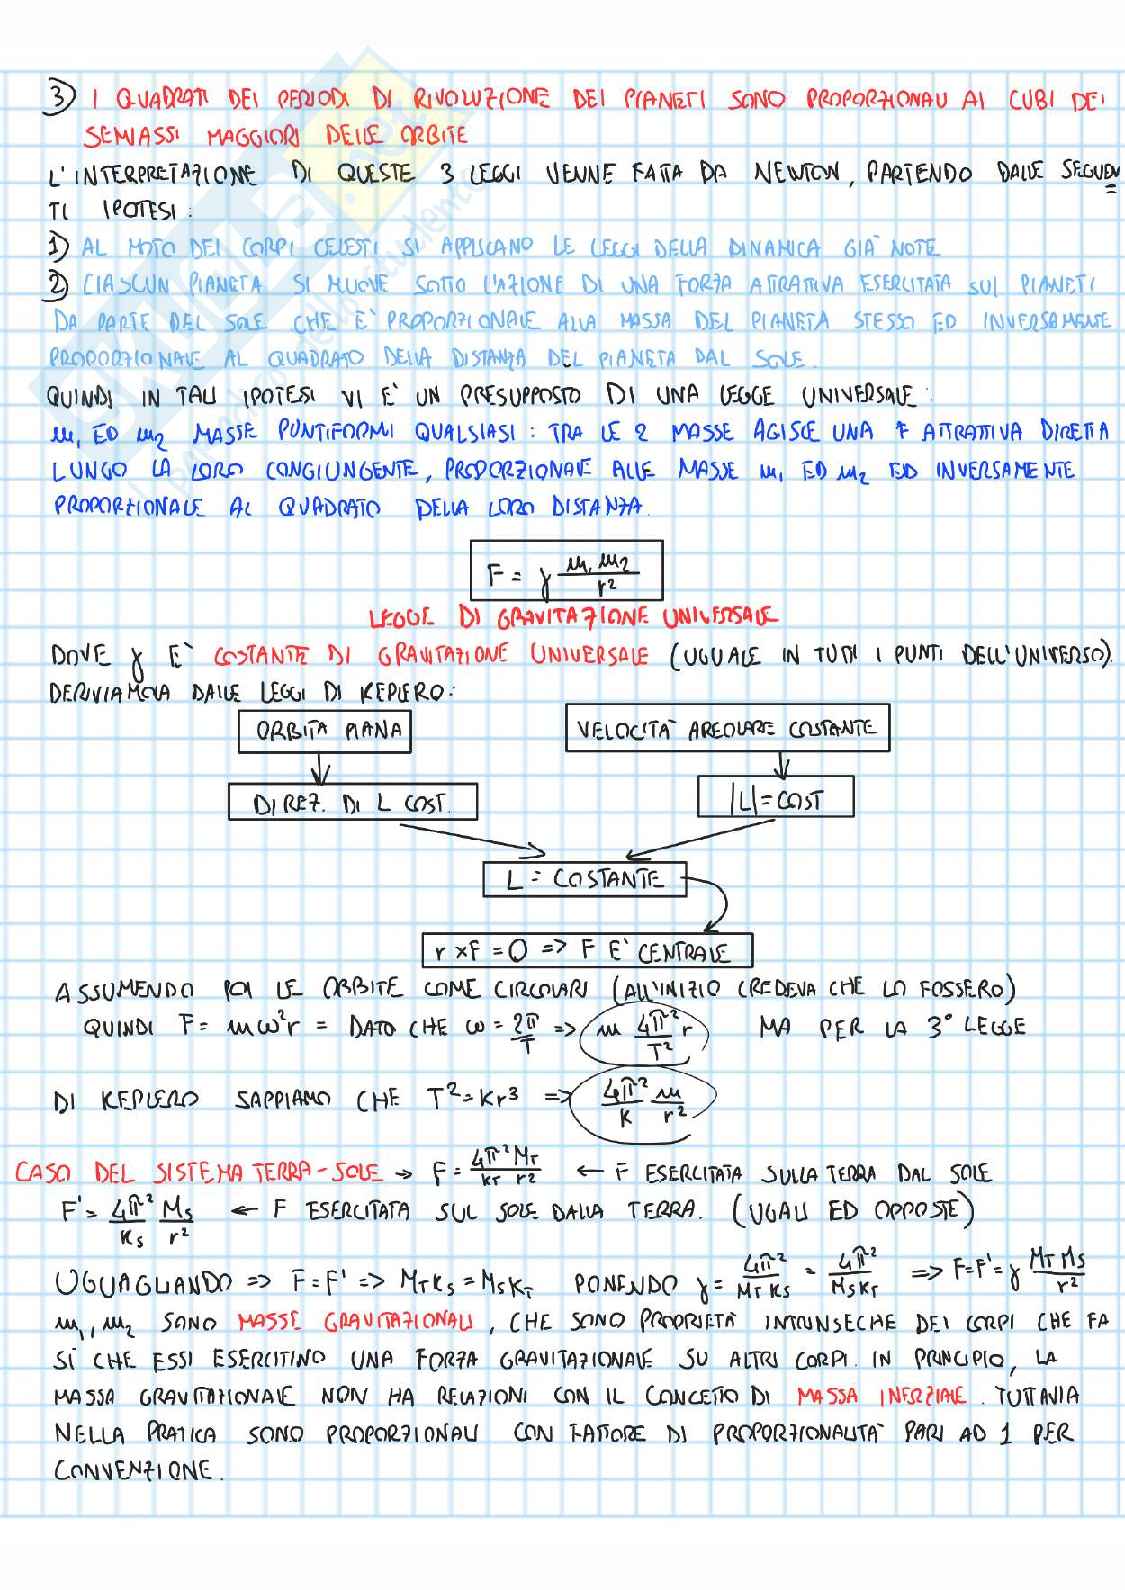 3) I QUADRATI DEI PERIODI DI RIVOLUZIONE DEI PIANETI SONO PROPORZIONALI AI CUBI DEI
SEMIASSI MAGGIORI DELLE ORBITE
L'INTERPRETAZIONE DI QUESTE 3 LEGGI VENNE FATTA DA NEWTON, PARTENDO DALLE SEGUEN
TI IPOTESI:
1) AL MOTO DEI CORPI CELESTI SI APPLICANO LE LEGGI DELLA DINAMICA GIÀ NOTE
2) CIASCUN PIANETA SI MUOVE SOTTO L'AZIONE DI UNA FORZA ATTRATTIVA ESERCITATA SUI PIANETI
DA PARTE DEL SOLE CHE E' PROPORZIONALE ALLA MASSA DEL PIANETA STESSO ED INVERSAMENTE
PROPORZIONALE AL QUADRATO DELLA DISTANZA DEL PIANETA DAL SOLE.
QUINDI IN TALI IPOTESI VI E' UN PRESUPPOSTO DI UNA LEGGE UNIVERSALE:
m₁ ED m₂ MASSE PUNTIFORMI QUALSIASI: TRA LE 2 MASSE AGISCE UNA F ATTRATTIVA DIRETTA
LUNGO LA LORO CONGIUNGENTE, PROPORZIONALE ALLE MASSE m₁ ED m₂ ED INVERSAMENTE
PROPORZIONALE AL QUADRATO DELLA LORO DISTANZA.
F = γ m₁ m₂ / r²
LEGGE DI GRAVITAZIONE UNIVERSALE
DOVE γ E' COSTANTE DI GRAVITAZIONE UNIVERSALE (UGUALE IN TUTTI I PUNTI DELL'UNIVERSO).
DERIVIAMOLA DALLE LEGGI DI KEPLERO:
ORBITA PIANA
VELOCITÀ AREOLARE COSTANTE
DIREZ. DI L COST.
|L| = COST
L = COSTANTE
r × F = 0 => F E' CENTRALE
ASSUMENDO POI LE ORBITE COME CIRCOLARI (ALL'INIZIO CREDEVA CHE LO FOSSERO)
QUINDI F = mω²r = DATO CHE ω = 2π/T => m 4π²/T² r MA PER LA 3° LEGGE
DI KEPLERO SAPPIAMO CHE T² = Kr³ => 4π²/K m/r²
CASO DEL SISTEMA TERRA-SOLE → F = 4π² M_T / K_T r² ← F ESERCITATA SULLA TERRA DAL SOLE
F' = 4π²/K_S M_S/r² ← F ESERCITATA SUL SOLE DALLA TERRA. (UGUALI ED OPPOSTE)
UGUAGLIANDO => F = F' => M_T K_S = M_S K_T PONENDO γ = 4π²/M_T K_S = 4π²/M_S K_T => F = F' = γ M_T M_S / r²
m₁, m₂ SONO MASSE GRAVITAZIONALI, CHE SONO PROPRIETÀ INTRINSECHE DEI CORPI CHE FA
SÌ CHE ESSI ESERCITINO UNA FORZA GRAVITAZIONALE SU ALTRI CORPI. IN PRINCIPIO, LA
MASSA GRAVITAZIONALE NON HA RELAZIONI CON IL CONCETTO DI MASSA INERZIALE. TUTTAVIA
NELLA PRATICA SONO PROPORZIONALI CON FATTORE DI PROPORZIONALITÀ PARI AD 1 PER
CONVENZIONE.